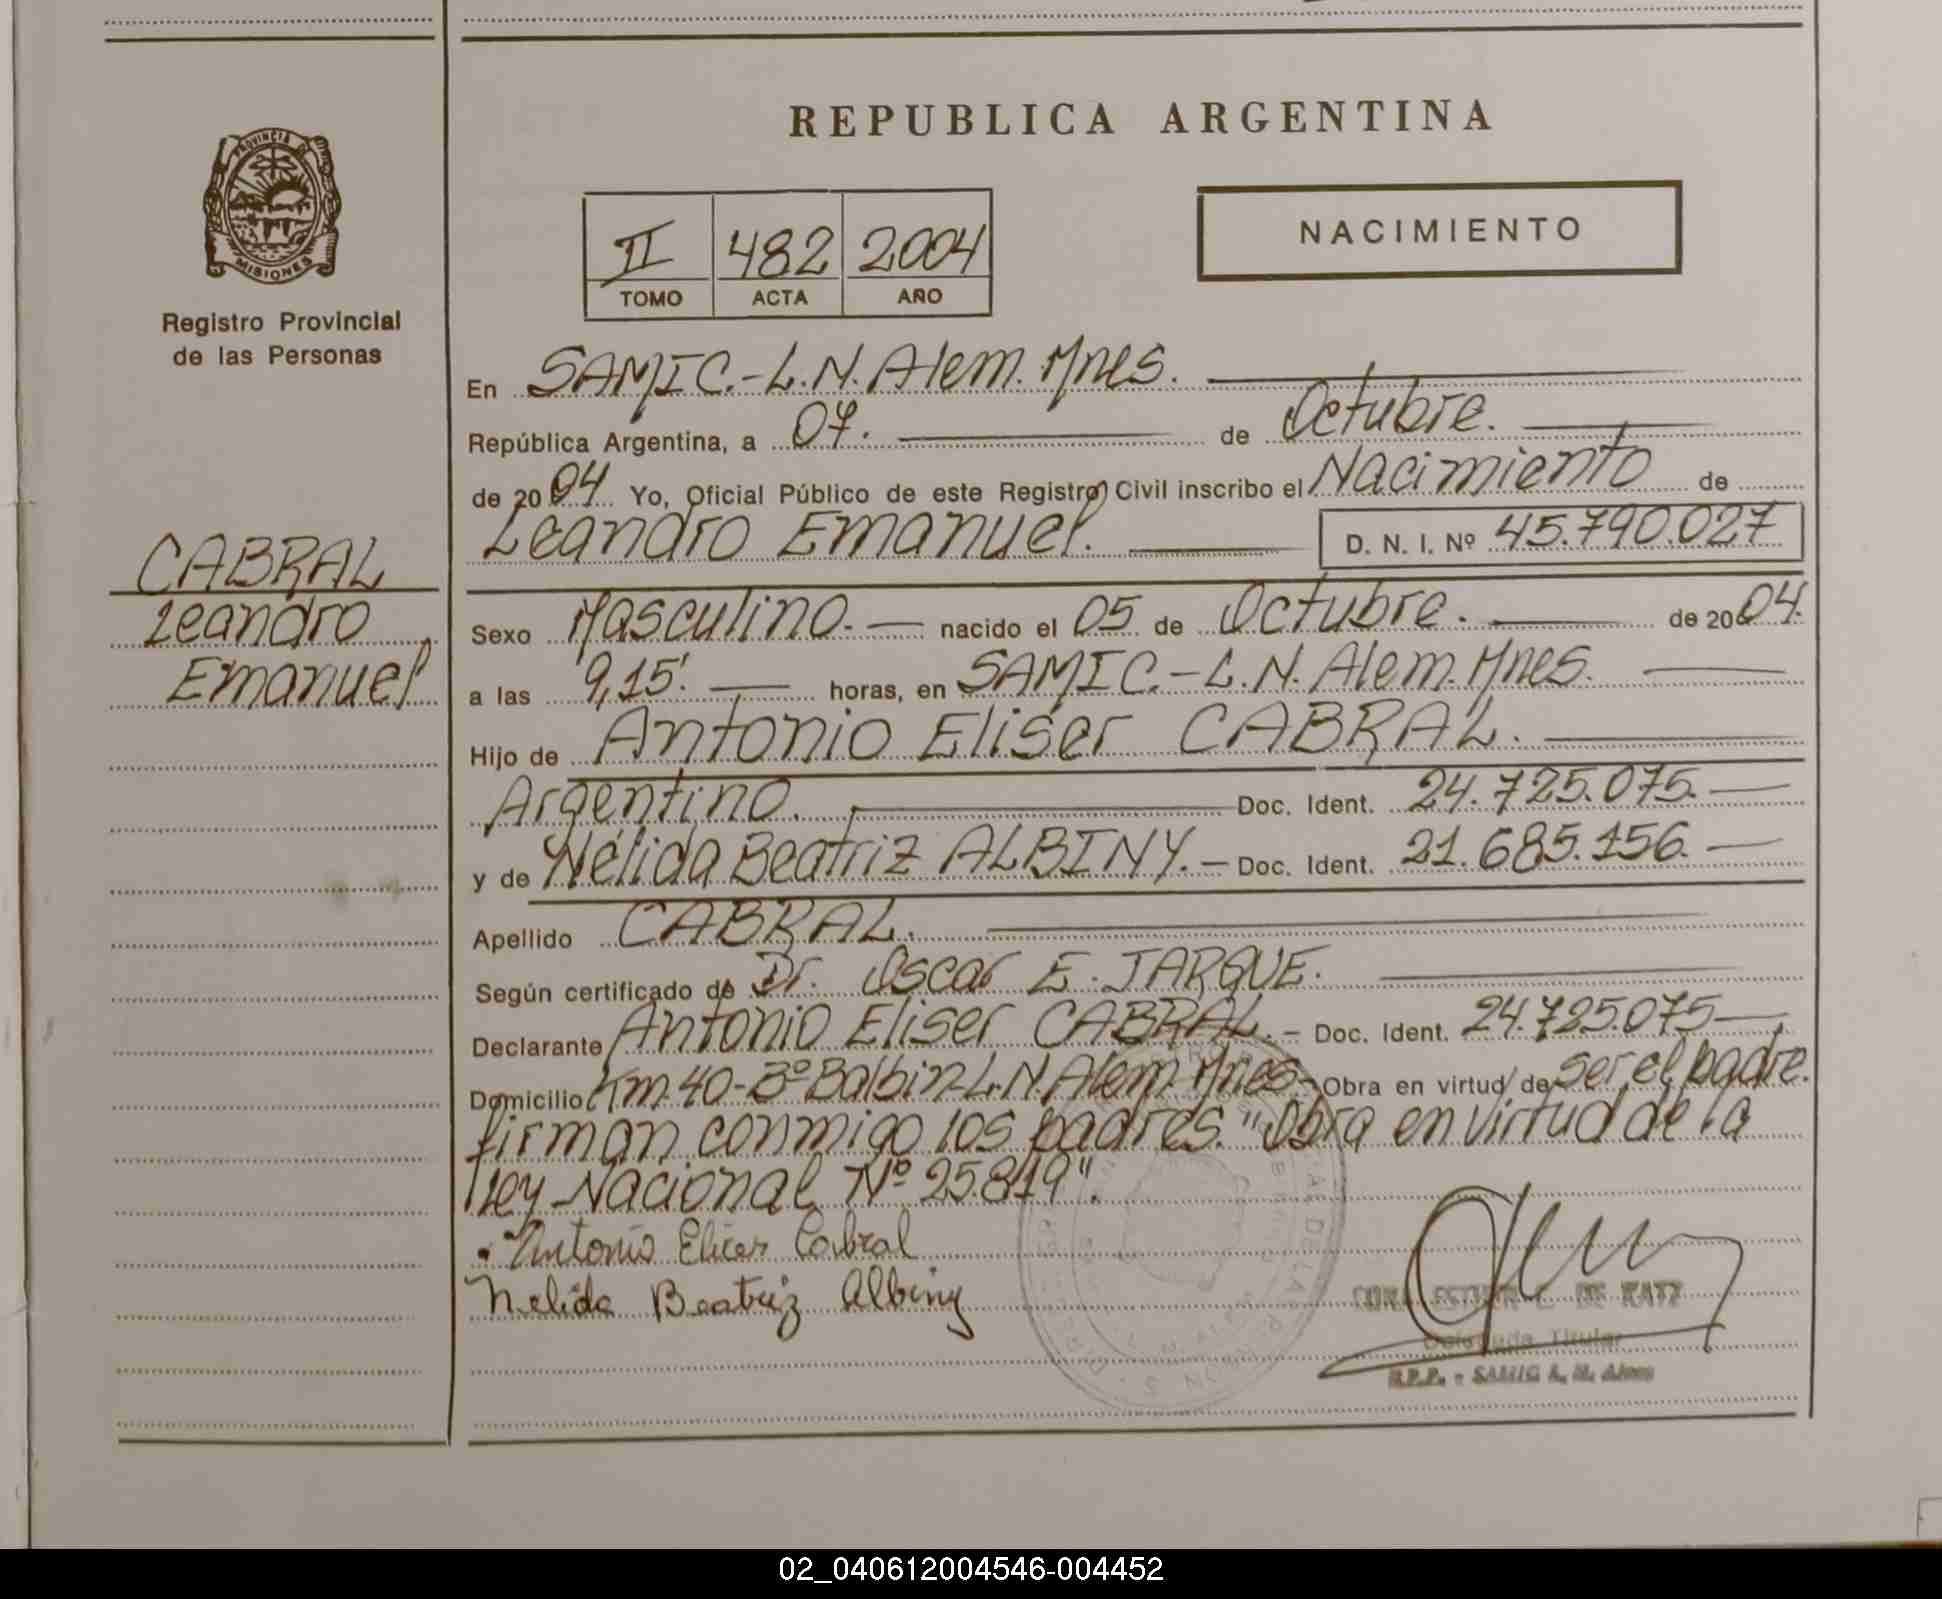 REPUBLICA ARGENTINA
PROVINCIA DE
MISIONES
Registro Provincial
de las Personas
II 482 2004
TOMO ACTA AÑO
NACIMIENTO
CABRAL
Leandro
Emanuel
En SAMIC.-L.N.Alem.Mnes.
República Argentina, a 07. de Octubre.
de 2004 Yo, Oficial Público de este Registro Civil inscribo el Nacimiento de
Leandro Emanuel. D. N. I. Nº 45.790.027
Sexo Masculino.- nacido el 05 de Octubre. de 2004.
a las 9,15'. horas, en SAMIC.-L.N.Alem.Mnes.
Hijo de Antonio Eliser CABRAL.
Argentino. Doc. Ident. 24.725.075.-
y de Nélida Beatriz ALBINY.- Doc. Ident. 21.685.156.-
Apellido CABRAL.
Según certificado de Dr. Oscar E. JARQUE.
Declarante Antonio Eliser CABRAL.- Doc. Ident. 24.725.075-
Domicilio Km.40-Bº Balbin-L.N.Alem.Mnes- Obra en virtud de ser el padre.
firman conmigo los padres. "Obra en virtud de la
Ley Nacional Nº 25.819".
Antonio Elicer Cabral
Nelida Beatriz Albiny
DE KATZ
Delegada Titular
R.P.P. - SAMIC L. N. Alem
02_040612004546-004452